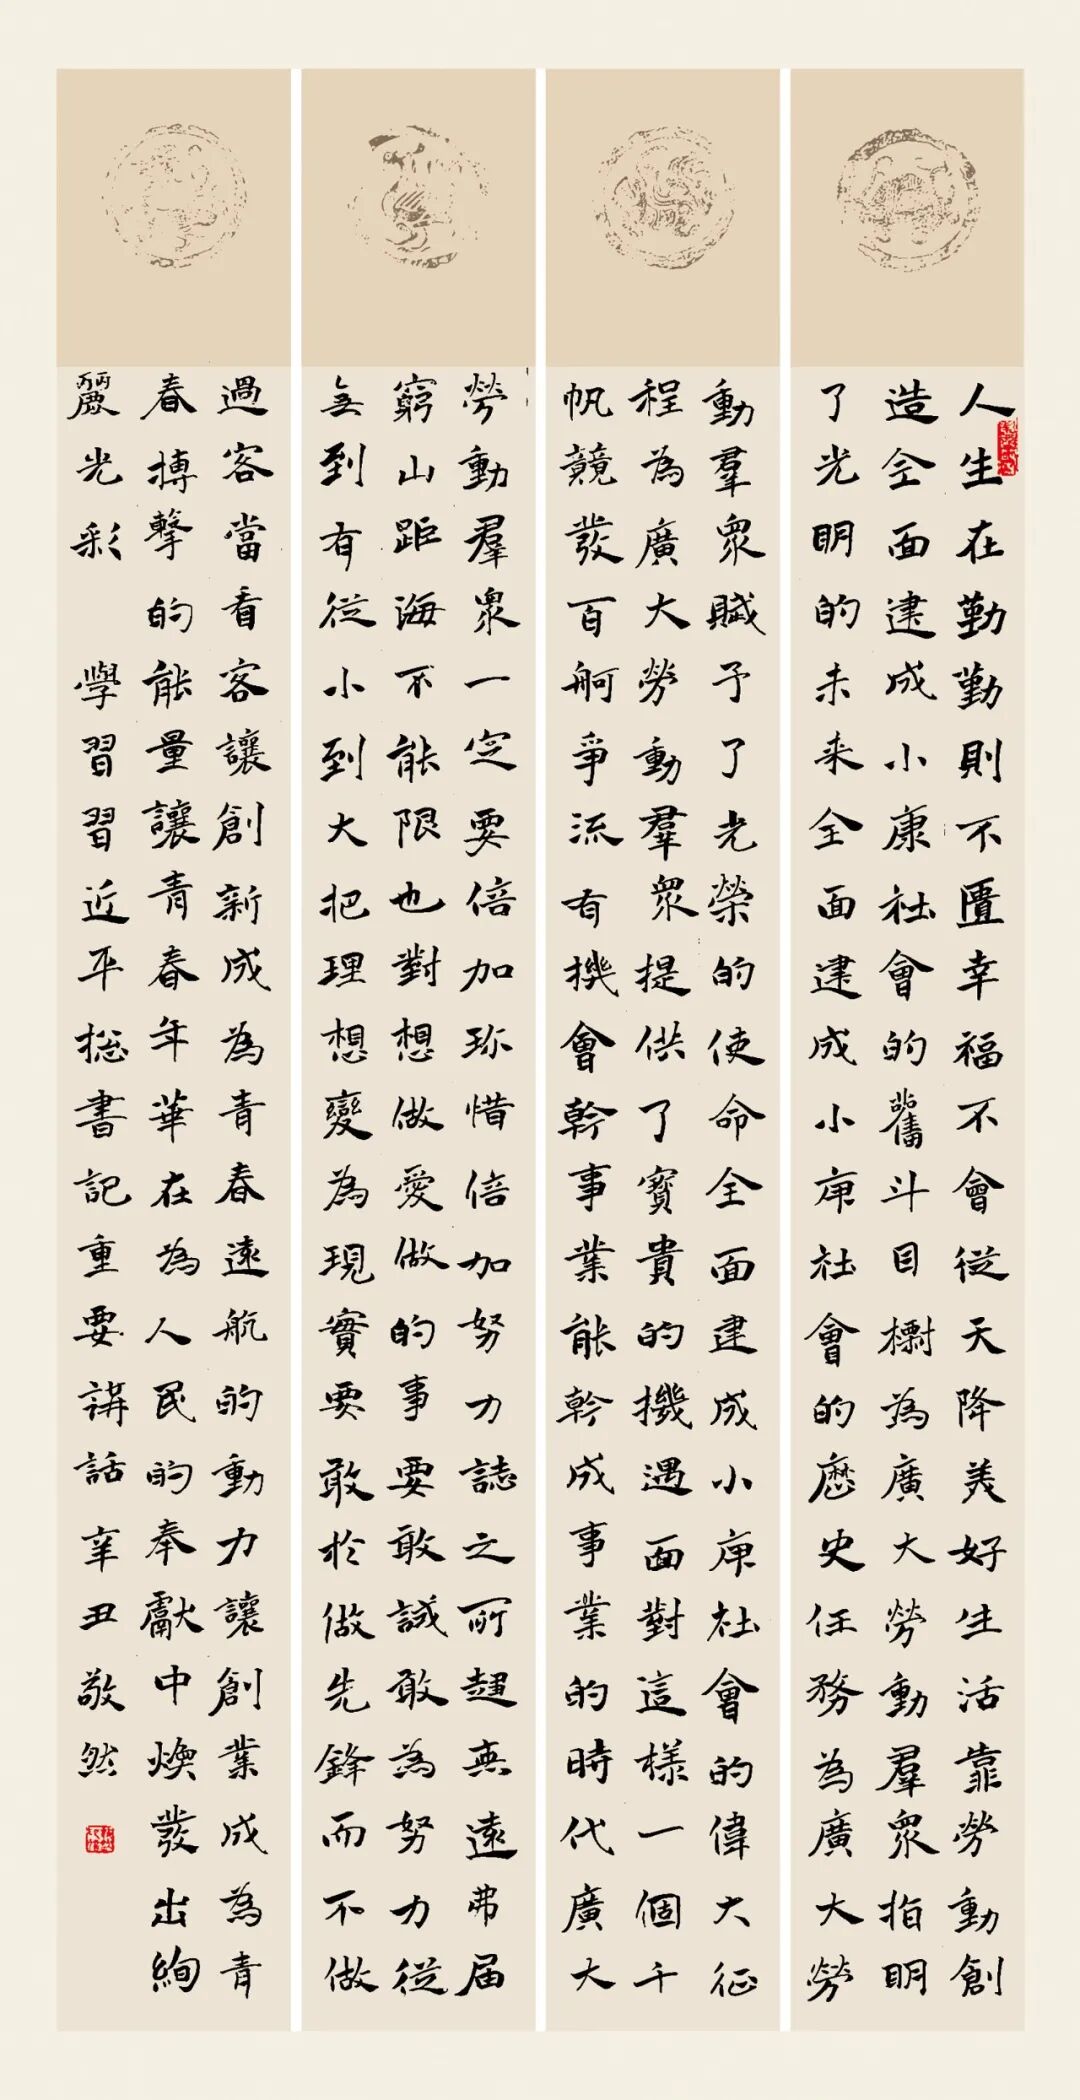 人生在勤勤則不匱幸福不會從天降美好生活靠勞動創
造全面建成小康社會的奮斗目標為廣大勞動羣眾指明
了光明的未来全面建成小康社會的歷史任務為廣大勞
動羣眾賦予了光榮的使命全面建成小康社會的偉大征
程為廣大勞動羣眾提供了寶貴的機遇面對這樣一個千
帆競發百舸爭流有機會幹事業能幹成事業的時代廣大
勞動羣眾一定要倍加珎惜倍加努力誌之所趨無遠弗届
窮山距海不能限也對想做愛做的事要敢試敢為努力從
無到有從小到大把理想變為現實要敢於做先鋒而不做
過客當看客讓創新成為青春遠航的動力讓創業成為青
春搏擊的能量讓青春年華在為人民的奉獻中煥發出絢
麗光彩 學習習近平總書記重要講話辛丑敬然